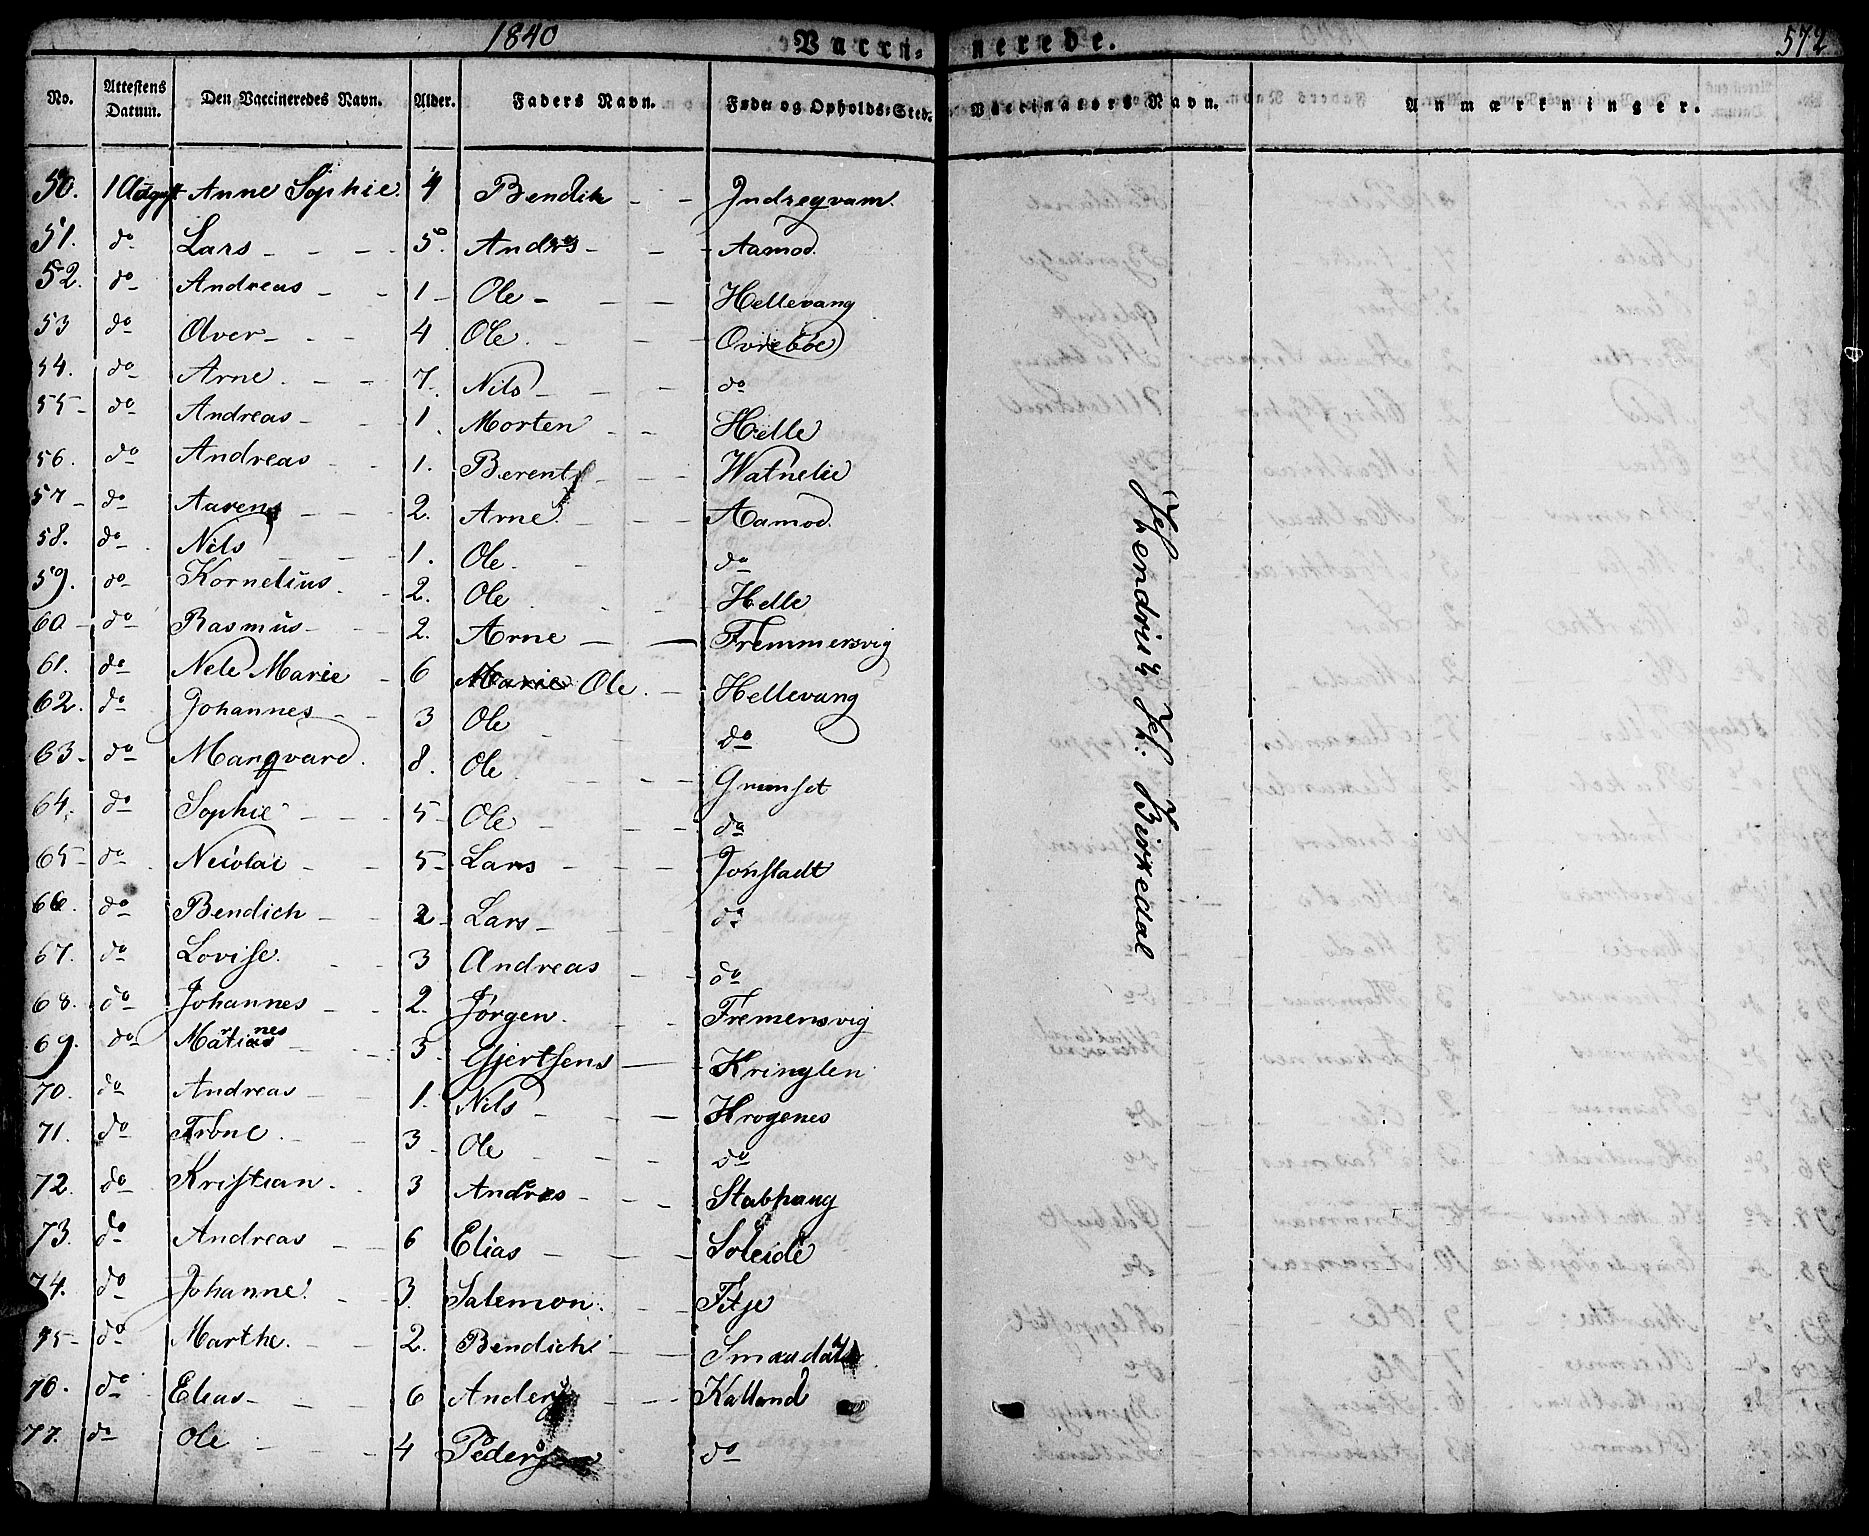 1840 Vacci- nerede. 572
No. Attestens Datum. Den Vaccineredes Navn. Alder. Faders Navn. Føde og Opholds-Sted. Vaccinateurs Navn. Anmærkninger.
50. 1 August Anne Sophie. 4 Bendik - - Indregvam.
51. do Lars - - - 5. Andrs - - Aamod.
52. do Andreas - - 1 - Ole - - - Hellevang
53 do Olver - - 4 Ole. - - Ovrebøe
54. do Arne. - - 7. Nils - - do
55 - do Andreas - 1. Morten - - Helle
56. do Andreas - - 1. Berent - - Watnelie
57 - do Aarens - - 2. Arne. - - Aamod.
58. do Nils - - 1. Ole. - - do
59. do Kornelius. - 2. Ole - - Helle
60 - do Rasmus - - 2. Arne - - Fremmersvig
61. do Nele Marie - 6 Ole. - Hellevang
62. do Johannes - - 3 Ole - - do
63 - do Marqvard. 8. Ole - - Grimset
64. do Sophie - - 5 - Ole - - - do
65 - do Nicolai - - 5 - Lars - - - Jonstadt
66. do Bendich - - 2 - Lars - - do
67. do Lovise. - - 3 Andreas - - do
68. do Johannes - 2. Jørgen. - - Fremensvig
69. do - - 5 - Gjertsens - Kringlen
70. do Andreas - - 1. Nils - - - Krogenes
71. do Trone. - - 3 - Ole - - - do
72. do Kristian. - 3 Andres - - - Stabhaug
73. do Andreas - - 6 Elias - - - Soleide
74. do Johanne. - - 3. Salemon. - - Fitje
75 - do Marthe. - - 2. Bendich - -
76. do Elias - - - 6 Anders - - - Kalland
77. do Ole - - 4 Peders do
Hendrik Birkedal